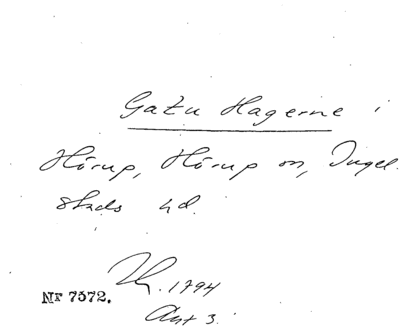 Gatu Hagerne i
Hörup, Hörup sn, Ingel-
stads hd.
Nr 7572.
1794
Akt 3.